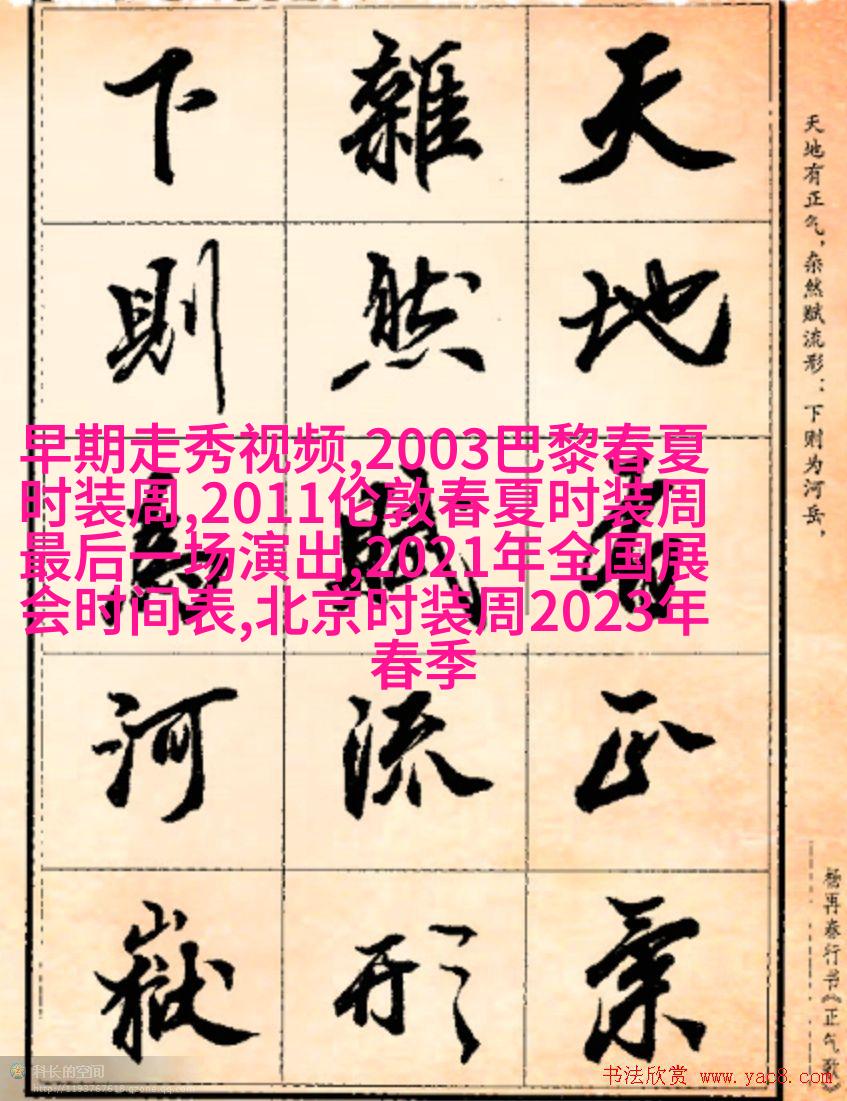 天地有正氣
雜然賦流形
下則為河嶽
天地有正气，杂然赋流形：下则为河岳，
杨再春行书《正气歌》
早期走秀视频,2003巴黎春夏
时装周,2011伦敦春夏时装周
最后一场演出,2021年全国展
会时间表,北京时装周2023年
春季
科长的空间
http://1193767618.qzone.qq.com
书法欣赏 www.yac8.com